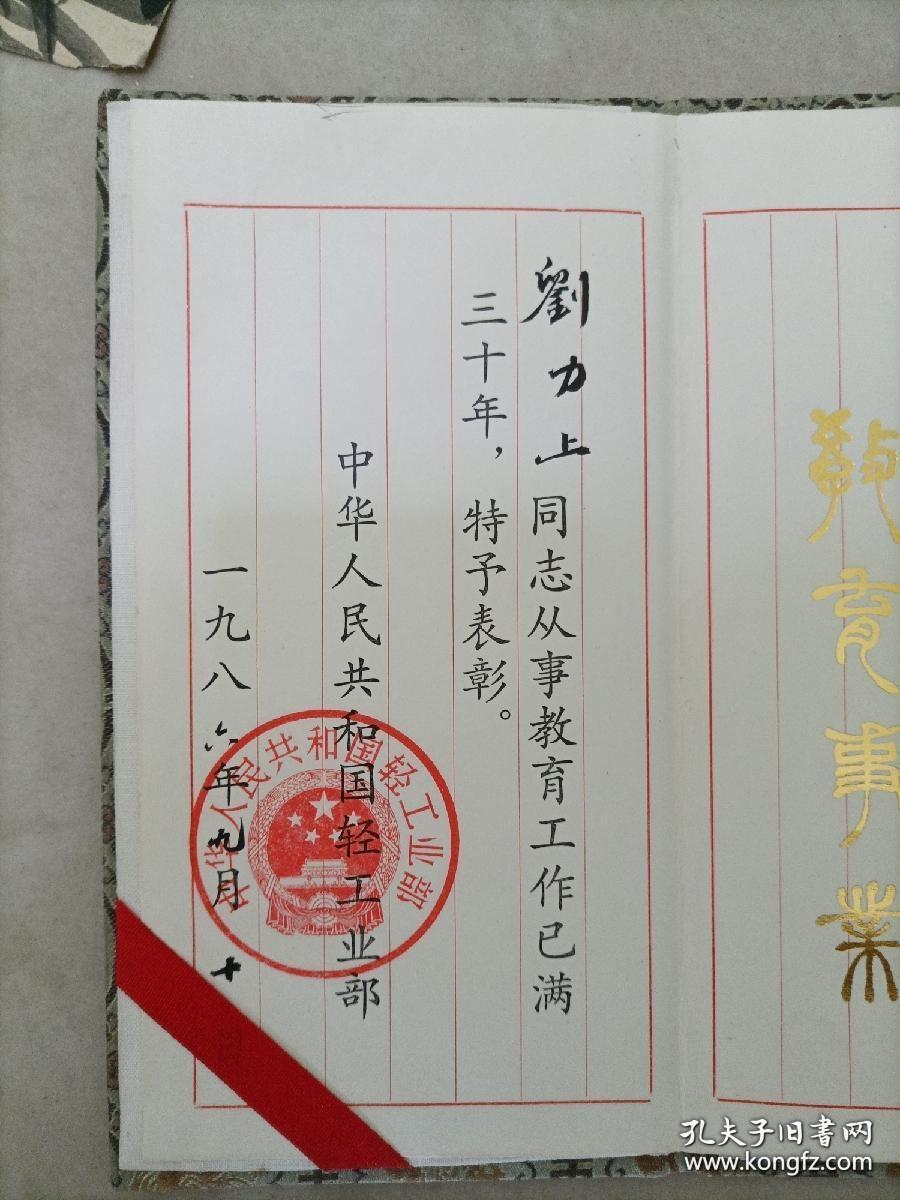 教育事业
劉力上同志从事教育工作已满
三十年，特予表彰。
中华人民共和国轻工业部
一九八六年九月十日
中华人民共和国轻工业部
孔夫子旧书网
www.kongfz.com